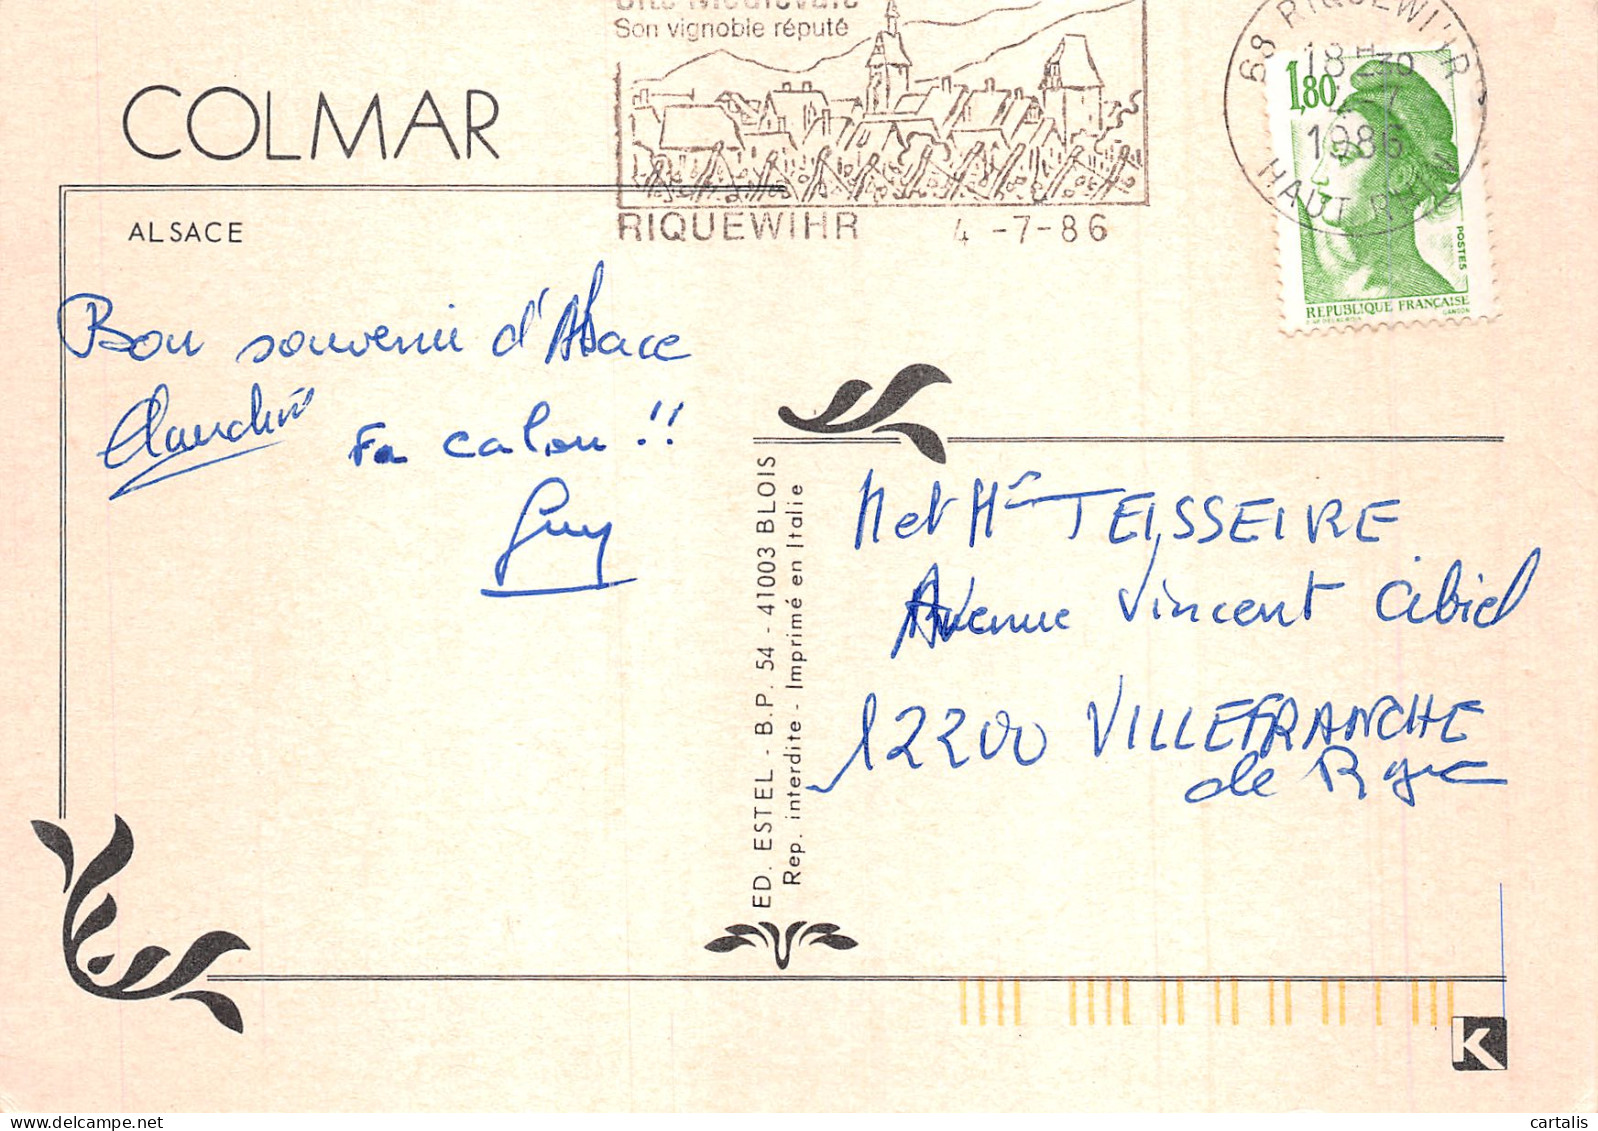 Cité Médiévale
Son vignoble réputé
RIQUEWIHR 4 -7-86
68 RIQUEWIHR
18H30
4-7
1986
HAUT RHIN
1,80
POSTES
REPUBLIQUE FRANÇAISE
GANDON
COLMAR
ALSACE
Bon souvenir d'Alsace
Claudine
Fa calou !!
Guy
ED. ESTEL - B.P. 54 - 41003 BLOIS
Rep. interdite - Imprimé en Italie
M et Me TEISSEIRE
Avenue Vincent Cibiel
12200 VILLEFRANCHE
de Rgue
K
cartalis.com